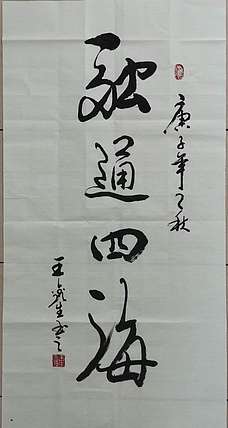 融通四海
庚子年之秋
王生书